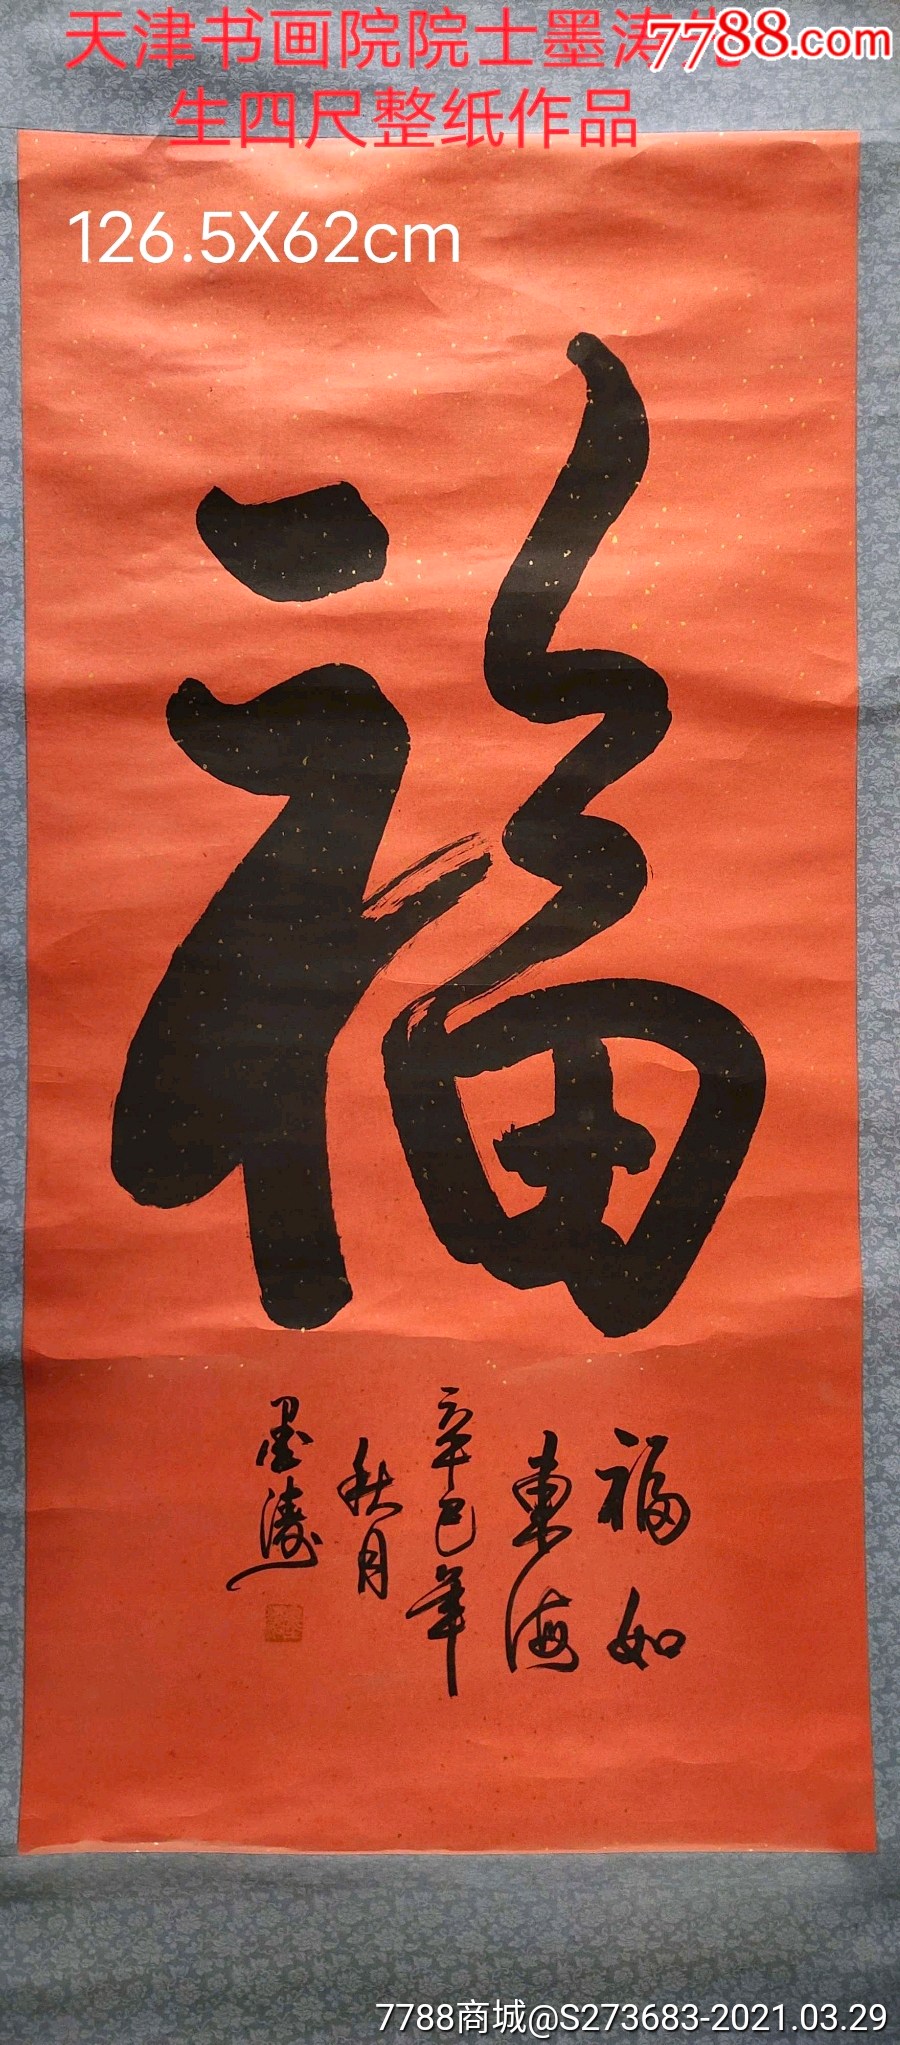 天津书画院院士墨涛先
7788.com
生四尺整纸作品
126.5X62cm
福
福如
東海
辛巳年
秋月
墨濤
7788商城@S273683-2021.03.29